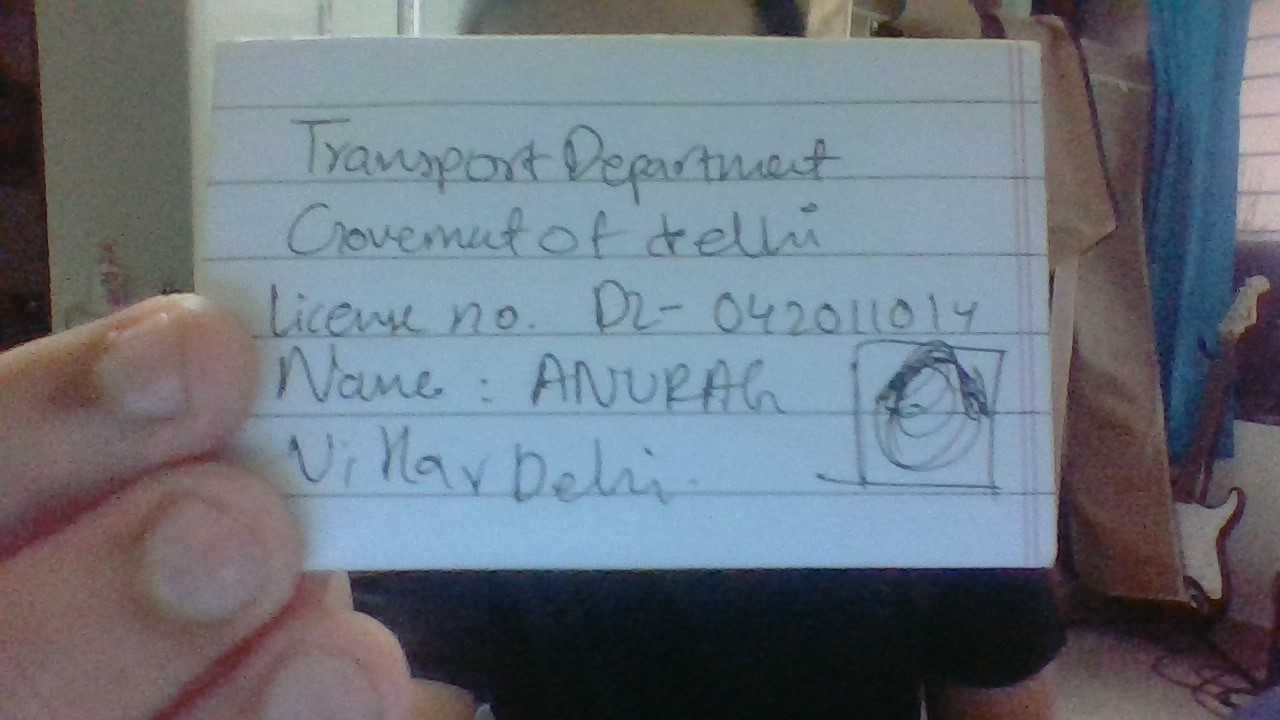 Transport Department
Governut of delhi
License no. DL- 042011014
Name : ANURAG
Vihar Delhi.